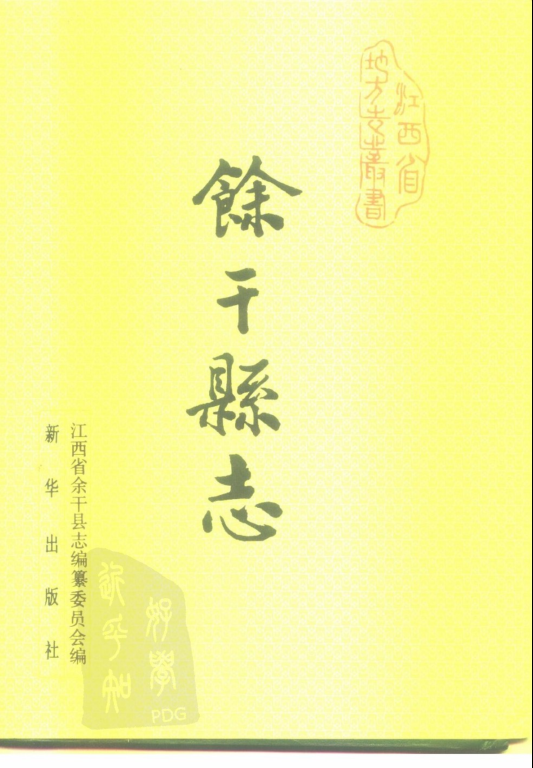 江西省
地方志叢書
餘干縣志
江西省余干县志编纂委员会编
新华出版社
好學
近乎知
PDG